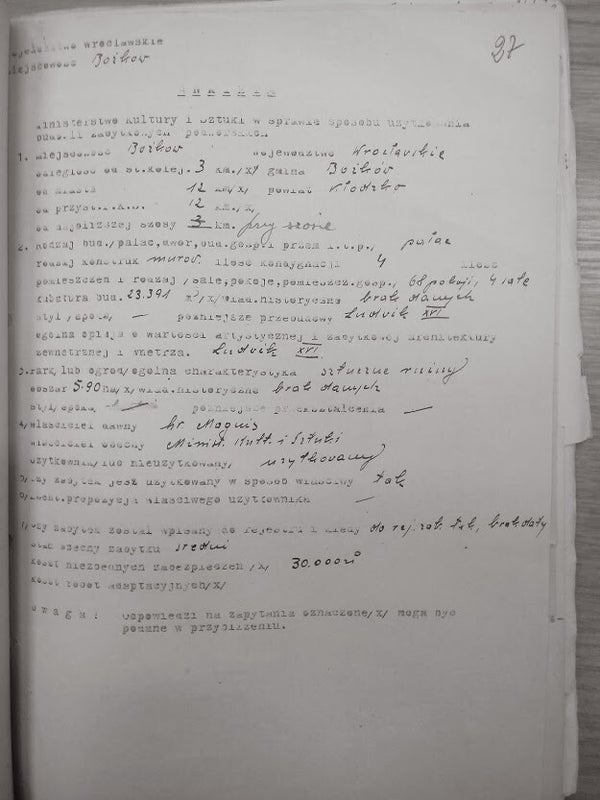 wrocławskie
Miejscowość Bożków
27
ANKIETA
Ministerstwo Kultury i Sztuki w sprawie sposobu użytkowania
bud. zabytkowych podworskich
1. miejscowość Bożków województwo Wrocławskie
odległość od st.kolej. 3 km./x/ gmina Bożków
od miasta 12 km/x/ powiat Kłodzko
od przyst.P.K.S. 12 km./x/
od najbliższej szosy 3 km. przy szosie
2. Rodzaj bud./pałac,dwór,bud.gosp.i przem i.t.p./ pałac
rodzaj konstruk murow. ilość kondygnacji 4 ilość
pomieszczeń i rodzaj /sale,pokoje,pomieszcz.gosp./ 68 pokoji, 4 sale
kubatura bud. 23.391 m³/x/wiad.historyczne brak danych
styl/epoka/ — późniejsze przebudowy Ludwik XVI
ogólna opinja o wartości artystycznej i zabytkowej architektury
zewnętrznej i wnętrza. Ludwik XVI
3. Park, lub ogród/ogólna charakterystyka sztuczne ruiny
obszar 5.90 ha/x/wiad.historyczne brak danych
styl/epoka/ późniejsze przekształcenia —
4/właściciel dawny hr Magnis
właściciel obecny Minist. Kult. i Sztuki
użytkownik/lub nieużytkowany/ użytkowany
5/czy zabytek jest użytkowany w sposób właściwy tak
6/ propozycji właściwego użytkownika —
7/czy zabytek został wpisany do rejestru i kiedy do rej. zab. tak, brak daty
stan obecny zabytku średni
koszt niezbędnych zabezpieczeń /x/ 30.000 zł
koszt robót adaptacyjnych/x/
Uwaga: Odpowiedzi na zapytania oznaczone/x/ mogą być
podane w przybliżeniu.